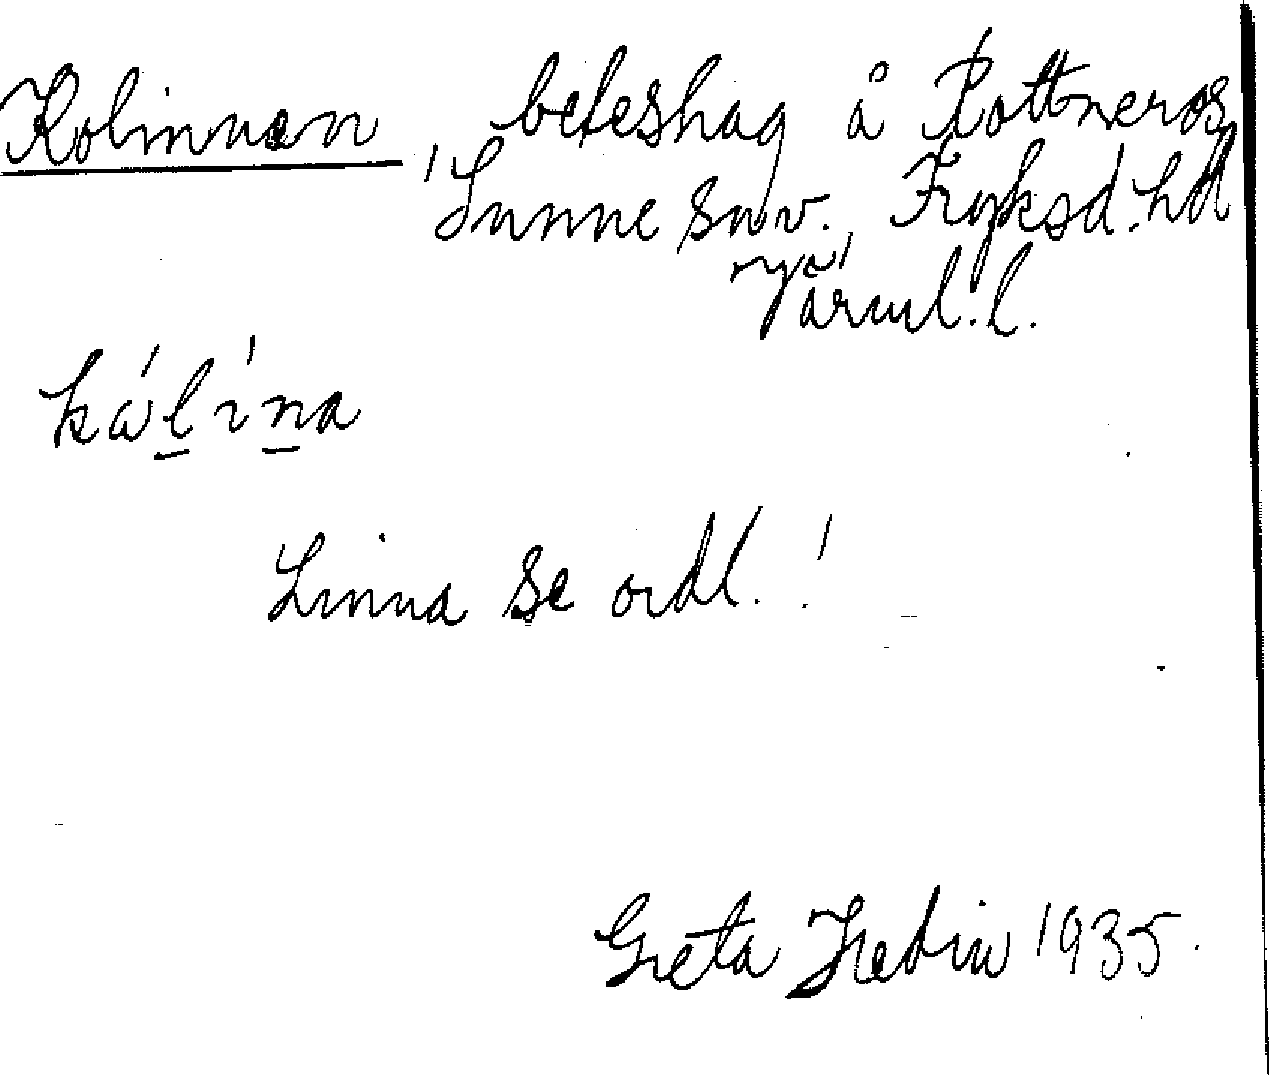 Kolinnan, beteshag å Rottneros
Sunne snv., Fryksd. hd
Värml. l.
kålina
Linna se ordl.!
Greta Hedin 1935.